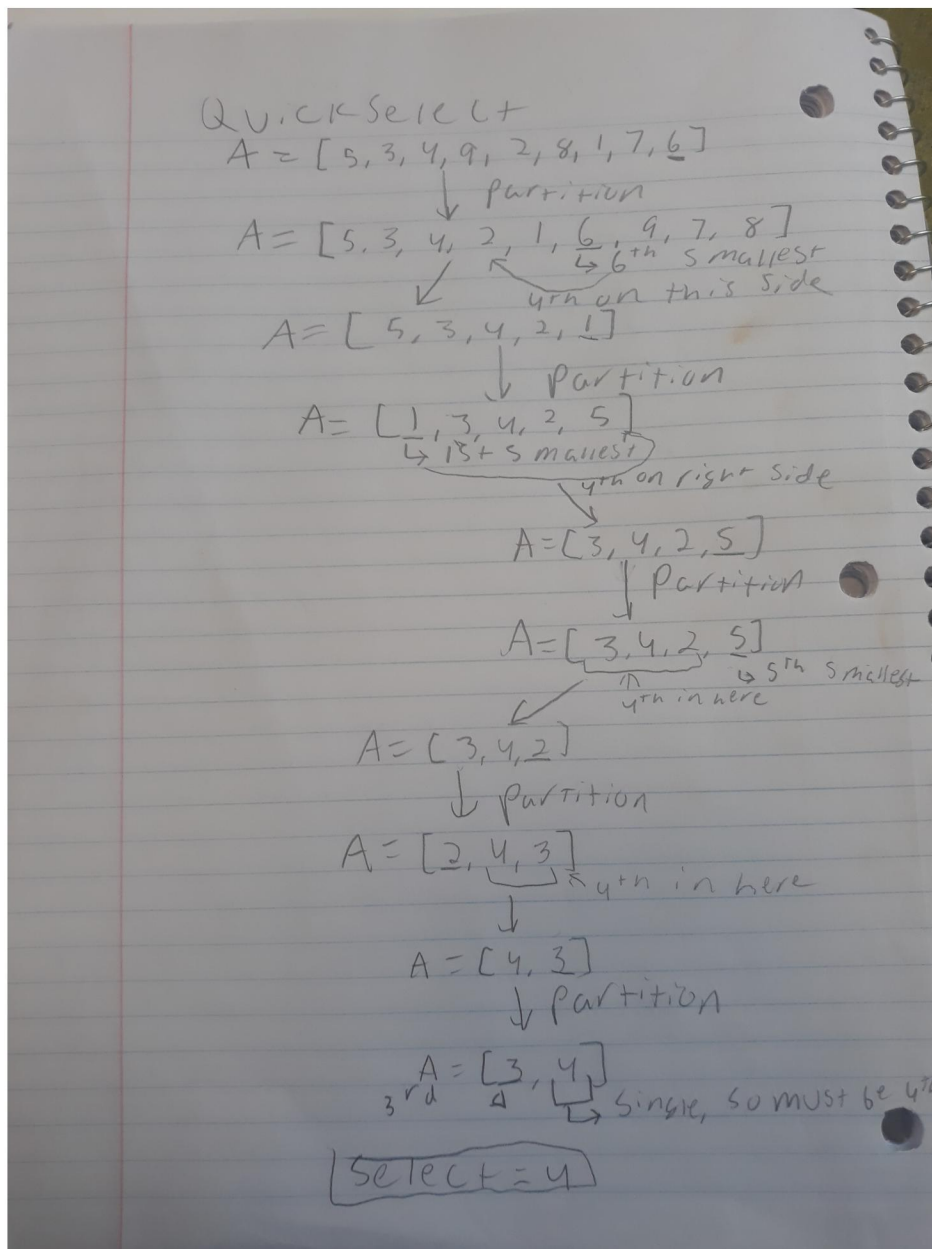 QuickSelect
A = [5, 3, 4, 9, 2, 8, 1, 7, 6]
↓ Partition
A = [5, 3, 4, 2, 1, 6, 9, 7, 8]
↳ 6th smallest
4th on this side
A = [5, 3, 4, 2, 1]
↓ Partition
A = [1, 3, 4, 2, 5]
↳ 1st smallest
4th on right side
A = [3, 4, 2, 5]
↓ Partition
A = [3, 4, 2, 5]
↳ 5th smallest
4th in here
A = [3, 4, 2]
↓ Partition
A = [2, 4, 3]
4th in here
A = [4, 3]
↓ Partition
A = [3, 4]
3rd
single, so must be 4th
Select = 4